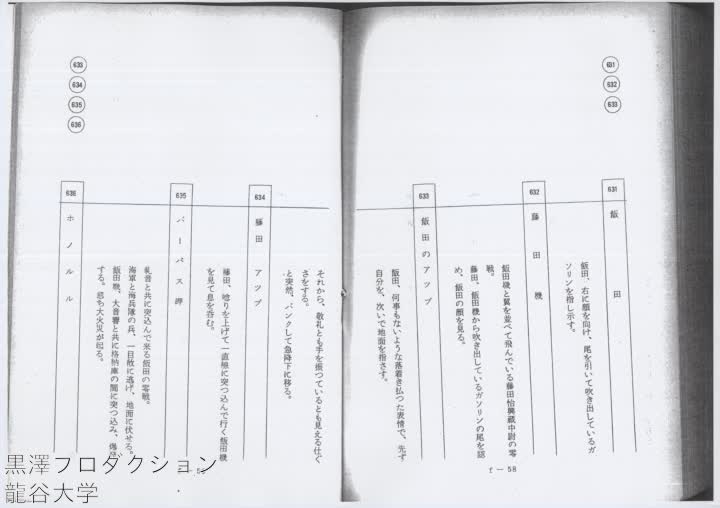 631
632
633
631
飯田
飯田、右に顔を向け、尾を引いて吹き出しているガ
ソリンを指し示す。
632
藤田機
飯田機と翼を並べて飛んでいる藤田怡與蔵中尉の零
戦。
藤田、飯田機から吹き出しているガソリンの尾を認
め、飯田の顔を見る。
633
飯田のアップ
飯田、何事もないような落着き払つた表情で、先ず
自分を、次いで地面を指さす。
f－58
633
634
635
636
それから、敬礼とも手を振つているとも見える仕ぐ
さをする。
と突然、バンクして急降下に移る。
634
藤田 アップ
藤田、唸りを上げて一直線に突つ込んで行く飯田機
を見て息を呑む。
635
バーバス岬
轟音と共に突込んで来る飯田の零戦。
海軍と海兵隊の兵、一目散に逃げ、地面に伏せる。
飯田機、大音響と共に格納庫の間に突つ込み、爆発
する。忽ち大火災が起る。
636
ホノルル
黒澤プロダクション
龍谷大学